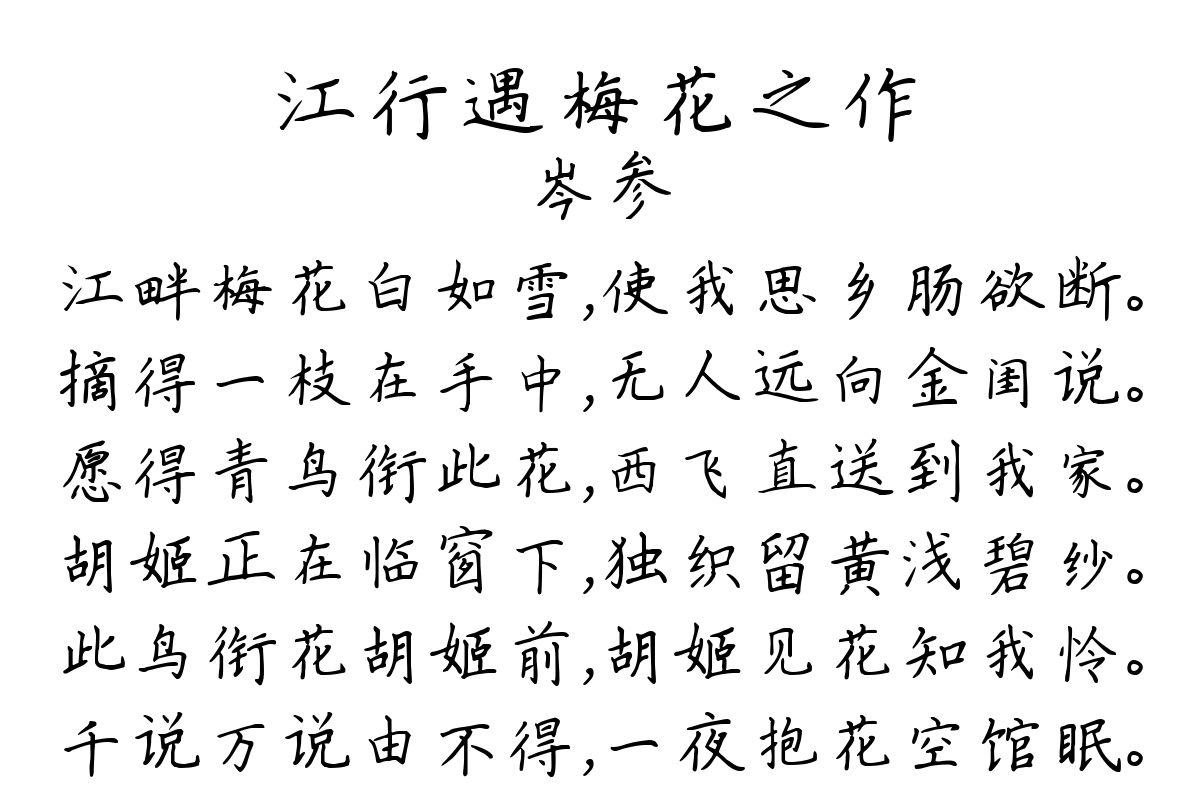 江行遇梅花之作
岑参
江畔梅花白如雪,使我思乡肠欲断。
摘得一枝在手中,无人远向金闺说。
愿得青鸟衔此花,西飞直送到我家。
胡姬正在临窗下,独织留黄浅碧纱。
此鸟衔花胡姬前,胡姬见花知我怜。
千说万说由不得,一夜抱花空馆眠。